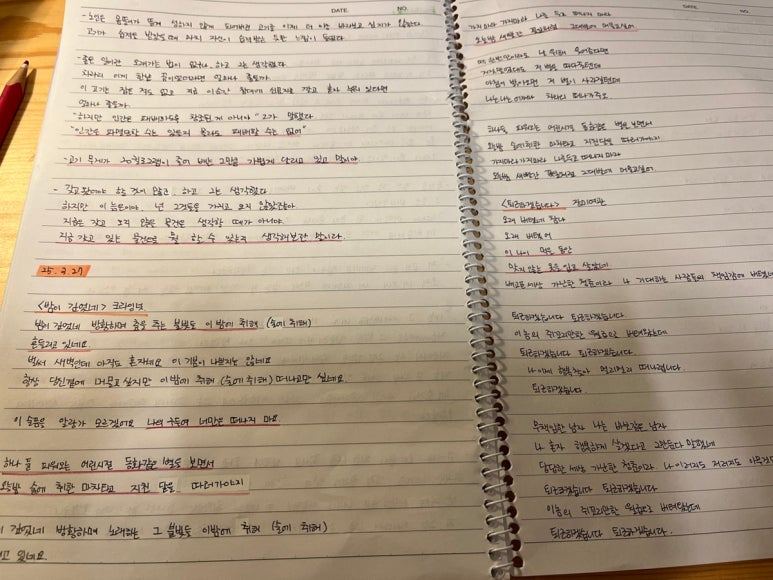 DATE NO.
- 노인은 몸뚱이가 뜯겨 성하지 않게 되어버린 고기를 이제 더 이상 바라보고 싶지가 않았다.
고기가 습격을 받았을때 마치 자신이 습격받은 듯한 느낌이 들었다.
- 좋은 일이란 오래가는 법이 없거든, 하고 그는 생각했다.
차라리 이게 한낱 꿈이었더라면 얼마나 좋을까.
이 고기는 잡은 적도 없고 지금 이순간 침대에 신문지를 깔고 혼자 누워 있다면
얼마나 좋을까.
- "하지만 인간은 패배하도록 창조된 게 아니야." 그가 말했다
"인간은 파멸당할 수는 있을지 몰라도 패배할 수는 없어"
- 고기 무게가 20킬로그램이 줄어 배는 그만큼 가볍게 달리고 있고 말이야
- 갖고왔어야 할 것이 많군, 하고 그는 생각했다
하지만 이 늙은이야, 넌 그것들을 가지고 오지 않았잖아.
지금은 갖고 오지 않은 물건을 생각할 때가 아니야.
지금 갖고 있는 물건으로 뭘 할 수 있는지 생각해보란 말이다.
25. 2. 27
<밤이 깊었네> 크라잉넛
밤이 깊었네 방황하며 춤을 추는 불빛들 이 밤에 취해 (술에 취해)
흔들리고 있네요
벌써 새벽인데 아직도 혼자네요 이 기분이 나쁘지는 않네요
항상 당신곁에 머물고 싶지만 이 밤에 취해 (술에 취해) 떠나고만 싶네요.
이 슬픔을 알랑가 모르겠어요 나의 구두여 너만은 떠나지 마요.
하나 둘 피워오는 어린시절 동화같은 별을 보면서
오늘밤 술에 취한 마차타고 지친 달을 따러가야지
깊었네 방황하며 노래하는 그 불빛들 이밤에 취해 (술에 취해)
있네요.
DATE NO.
가지마라 가지마라 나를 두고 떠나지 마라
오늘밤 새빨간 꽃잎처럼 그대발에 머물고싶어
딱 한번만이라도 날 위해 웃어준다면
거짓말이었대도 저 별을 따다줄텐데
아침이 밝아오면 저 별이 사라질텐데
나는나는 어쩌나 차라리 떠나가주오.
하나둘 피워오는 어린시절 동화같은 별을 보면서
오늘밤 술에취한 마차타고 지친달을 따러가야지
가지마라 가지마라 나를두고 떠나지 마라
오늘밤 새빨간 꽃잎처럼 그대발에 머물고싶어
<퇴근하겠습니다> 장미여관
오래 버텼네 참나
오래 버텼어
이 나이 먹은 동안
맞지 않는 옷을 입고 살았네
배고픈세상 가난한 청춘이라 나 기대하는 사람들의 책임감에 버텼네
퇴근하겠습니다 퇴근하겠습니다
이놈의 쥐꼬리만한 월급으로 버텨왔는데
퇴근하겠습니다 퇴근하겠습니다.
나 이제 행복찾아 멀리멀리 떠나렵니다.
퇴근하겠습니다.
무책임한 남자 나는 바보같은 남자
나 혼자 행복하게 살겠다고 그만둔다 말했네
답답한 세상 가난한 청춘이라 나 이러지도 저러지도
퇴근하겠습니다 퇴근하겠습니다
이놈의 쥐꼬리만한 월급으로 버텨왔는데
퇴근하겠습니다 퇴근하겠습니다.